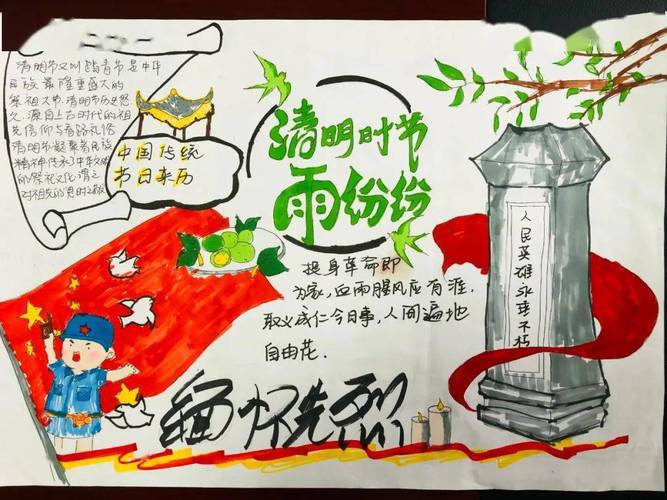 清明节又叫踏青节是中华
民族最隆重盛大的
祭祖大节,清明节历史悠
久,源自上古时代的祖
先信仰与春祭礼俗
清明节凝聚着民族
精神传承了中华文明
的祭祀文化
中国传统
节日来历
清明时节
雨纷纷
投身革命即
为家,血雨腥风应有涯.
取义成仁今日事,人间遍地
自由花.
缅怀先烈
人民英雄永垂不朽